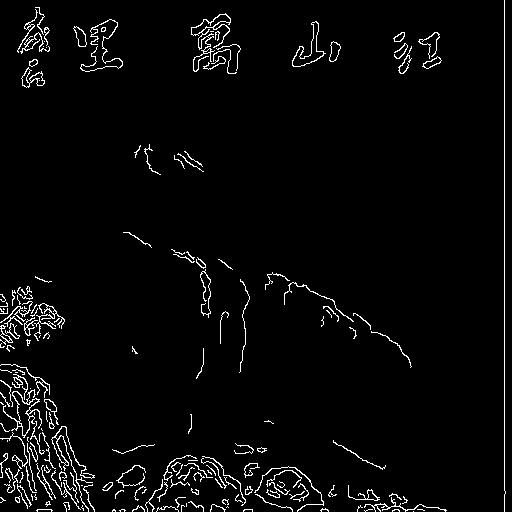 江山萬里